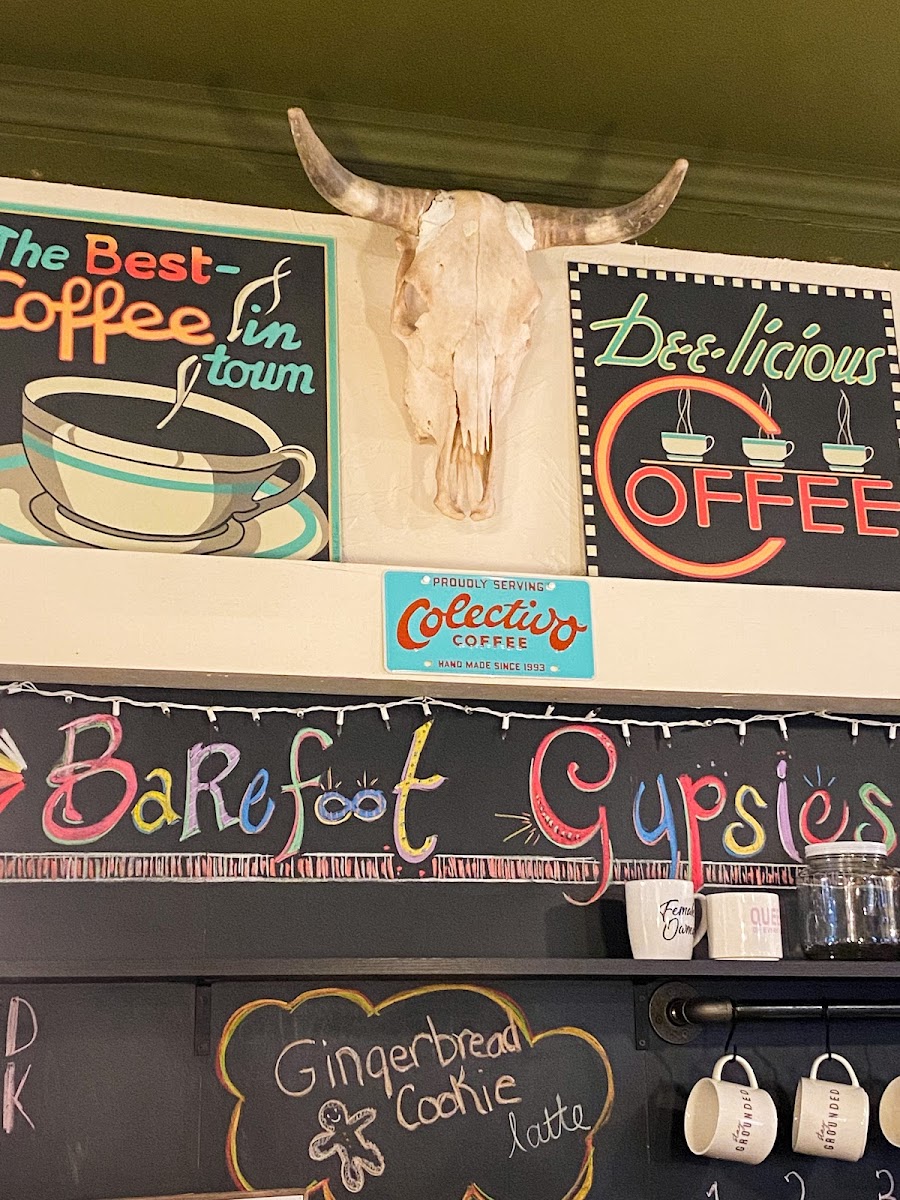 The Best-
Coffee in
town
Dee-licious
COFFEE
PROUDLY SERVING
Colectivo
COFFEE
HAND MADE SINCE 1993
Barefoot Gypsies
Female
Owned
D
K
Gingerbread
Cookie
latte
stay
GROUNDED
stay
GROUNDED
1 2 3